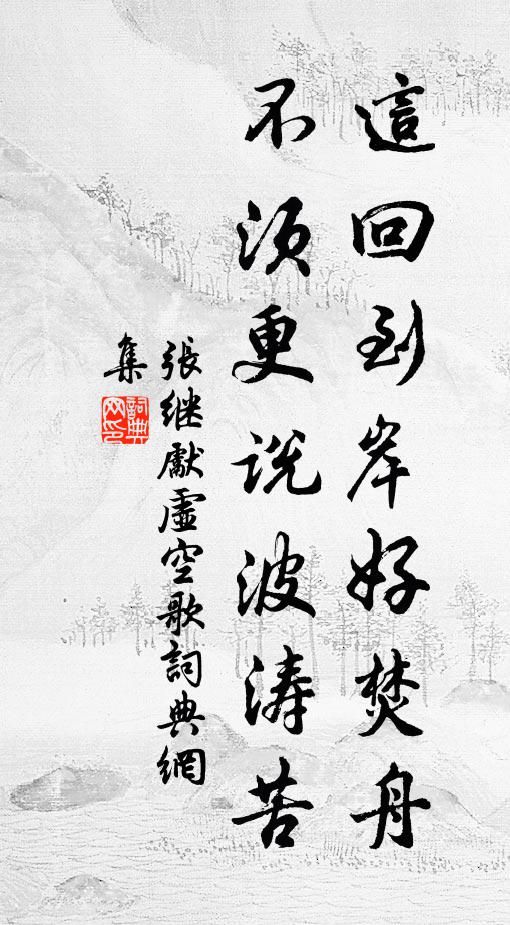 這回到岸好焚舟
不須更説波濤苦
張继獻虛空歌詞典網
集
詞典網印